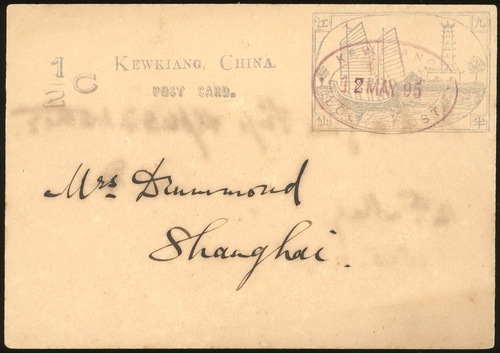 1/2 C
KEWKIANG, CHINA.
POST CARD.
江 九
2 MAY 95
仙 半
Mrs Drummond
Shanghai.